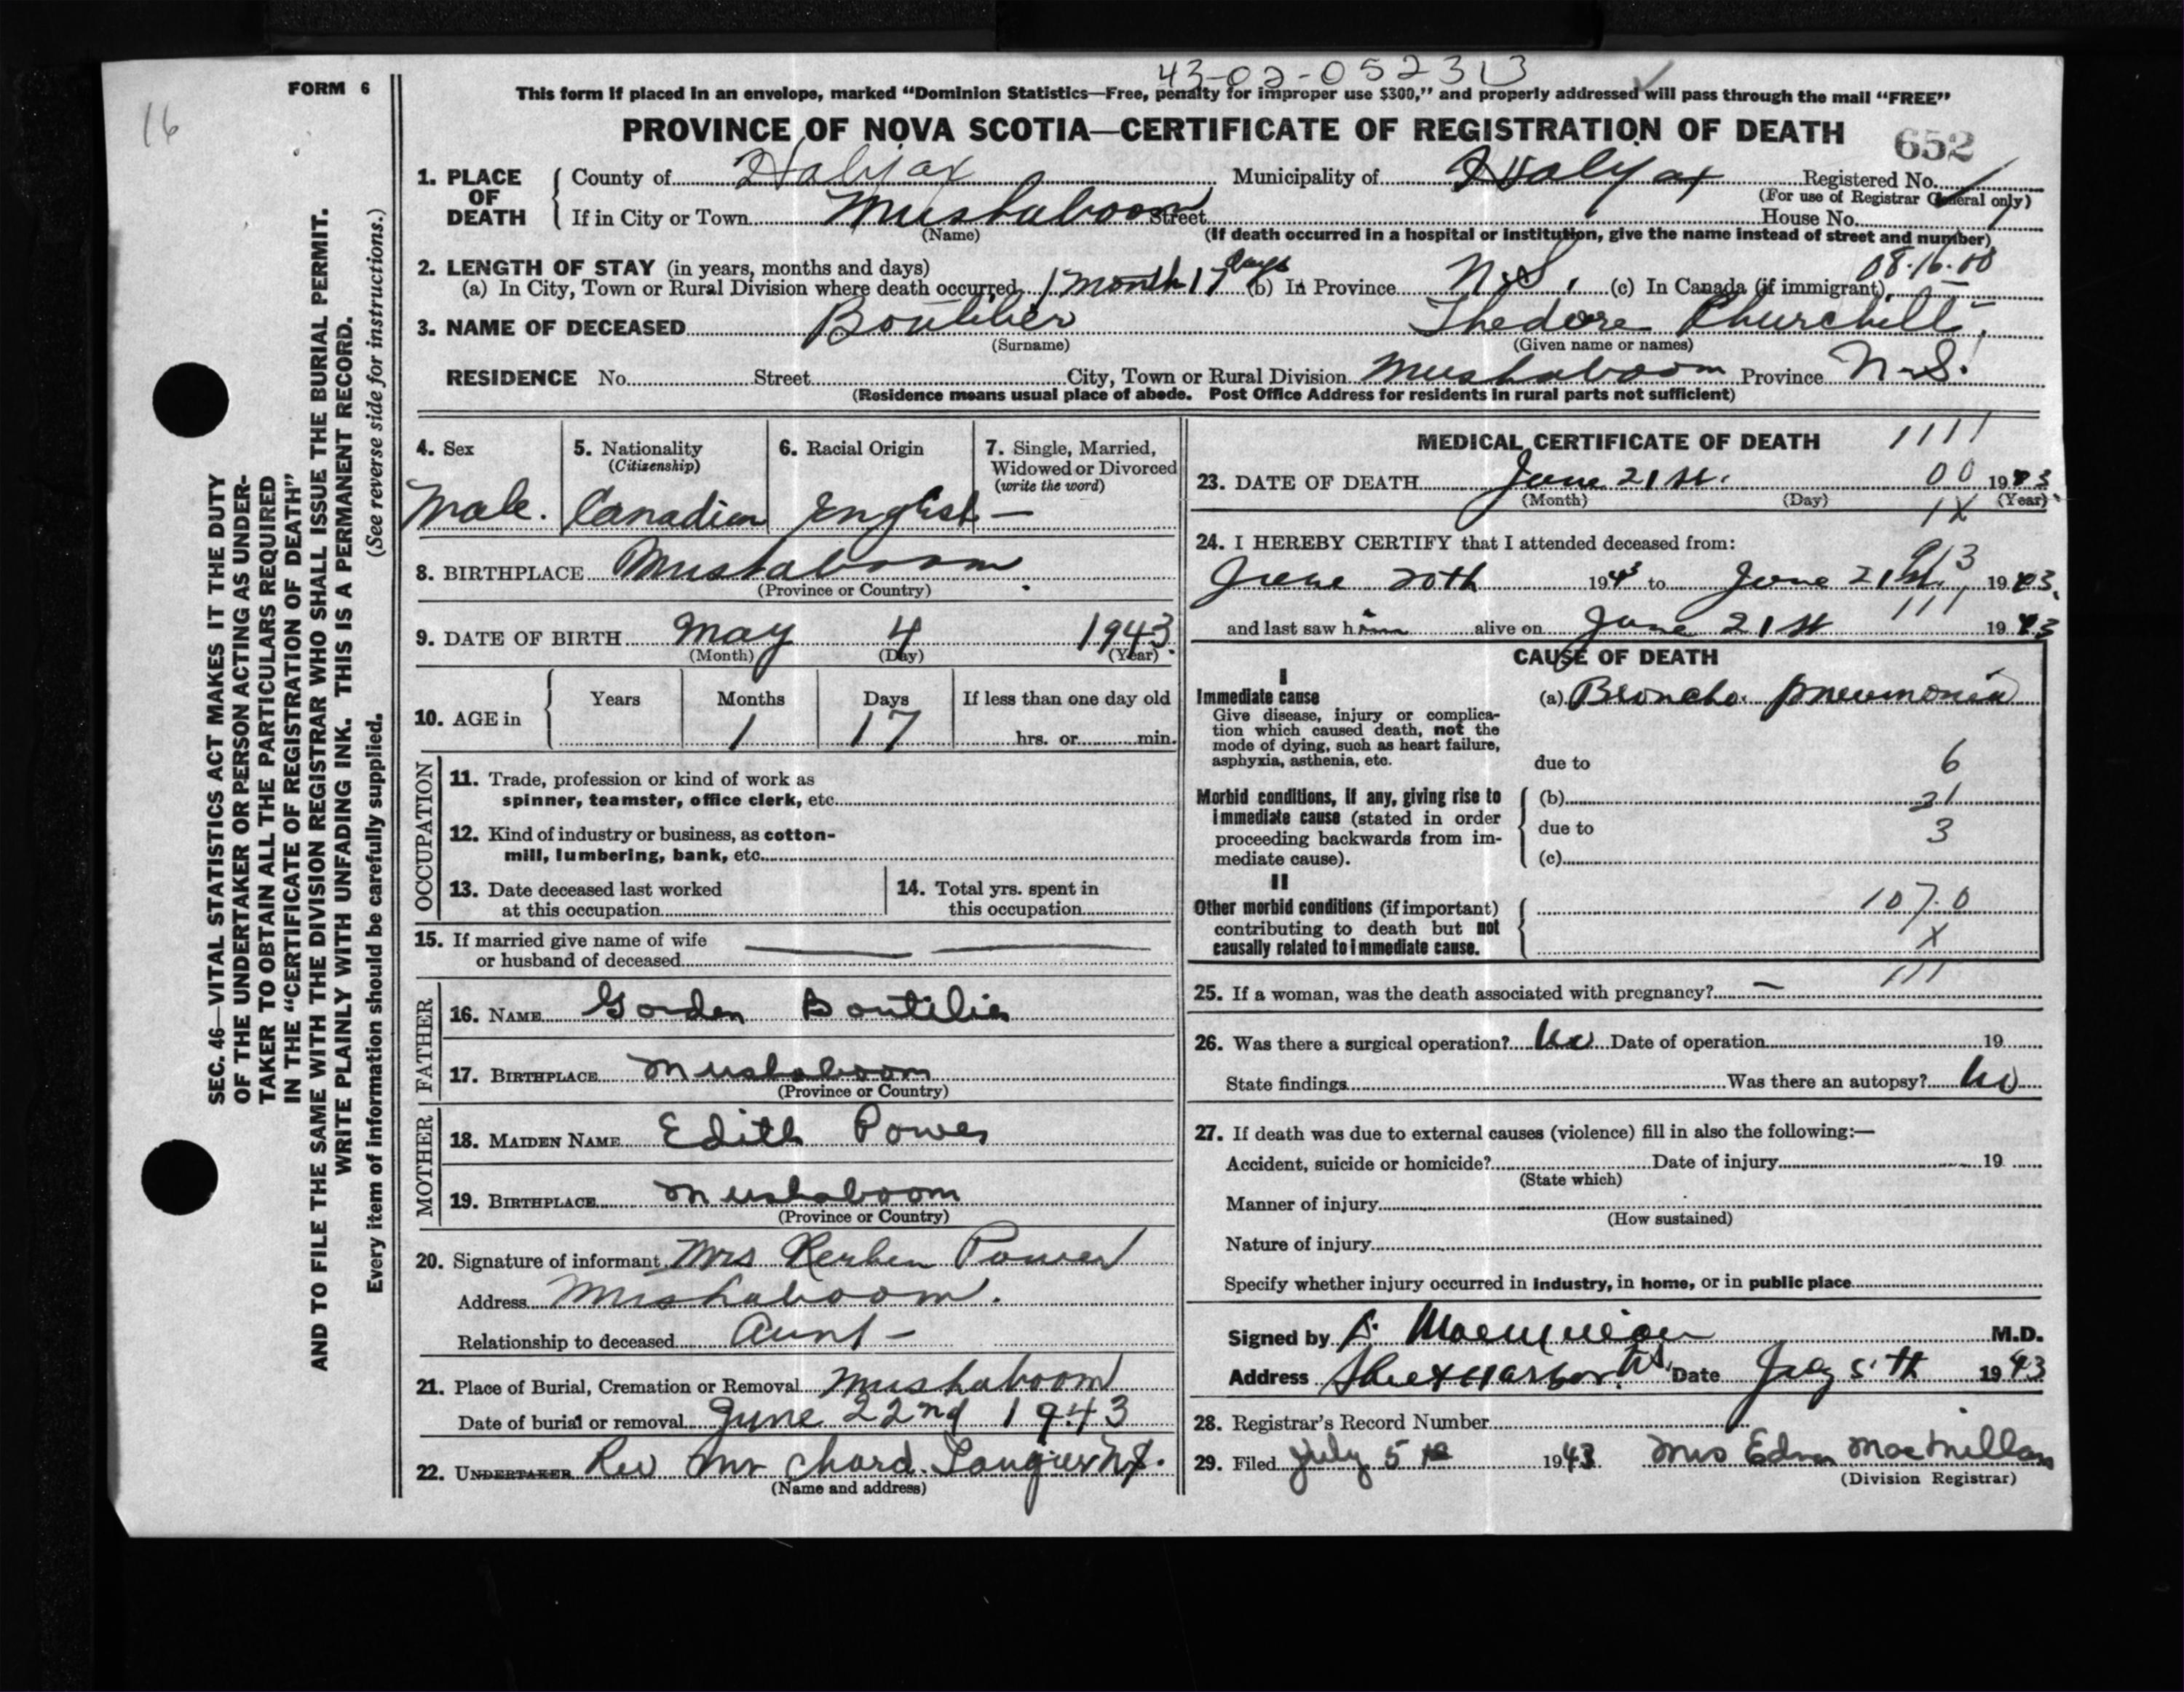 43-02-052313
FORM 6
16
This form if placed in an envelope, marked “Dominion Statistics—Free, penalty for improper use $300,” and properly addressed will pass through the mail “FREE”
PROVINCE OF NOVA SCOTIA—CERTIFICATE OF REGISTRATION OF DEATH
652
1. PLACE OF DEATH County of Halifax Municipality of Halifax Registered No.
(For use of Registrar General only)
If in City or Town Mushaboom Street House No.
(Name)
(If death occurred in a hospital or institution, give the name instead of street and number)
2. LENGTH OF STAY (in years, months and days)
08.16.00
(a) In City, Town or Rural Division where death occurred 1 month 17 days (b) In Province N.S. (c) In Canada (if immigrant)
3. NAME OF DECEASED Boutilier Thedore Churchill
(Surname) (Given name or names)
RESIDENCE No. Street City, Town or Rural Division Mushaboom Province N.S.
(Residence means usual place of abode. Post Office Address for residents in rural parts not sufficient)
4. Sex
Male.
5. Nationality
(Citizenship)
Canadian
6. Racial Origin
English
7. Single, Married,
Widowed or Divorced
(write the word)
—
8. BIRTHPLACE Mushaboom.
(Province or Country)
9. DATE OF BIRTH May 4 1943.
(Month) (Day) (Year)
10. AGE in
Years Months Days If less than one day old
1 17 hrs. or min.
OCCUPATION
11. Trade, profession or kind of work as
spinner, teamster, office clerk, etc.
12. Kind of industry or business, as cotton-
mill, lumbering, bank, etc.
13. Date deceased last worked
at this occupation
14. Total yrs. spent in
this occupation
15. If married give name of wife
or husband of deceased
FATHER
16. NAME Gorden Boutilier
17. BIRTHPLACE Mushaboom
(Province or Country)
MOTHER
18. MAIDEN NAME Edith Power
19. BIRTHPLACE Mushaboom
(Province or Country)
20. Signature of informant Mrs Reuben Power
Address Mushaboom.
Relationship to deceased Aunt -
21. Place of Burial, Cremation or Removal Mushaboom
Date of burial or removal June 22nd 1943
22. UNDERTAKER Rev Mr Chard.
(Name and address)
MEDICAL CERTIFICATE OF DEATH
1111
23. DATE OF DEATH June 21st. 00 1943
(Month) (Day) (Year)
1X
24. I HEREBY CERTIFY that I attended deceased from:
June 20th 1943 to June 21st 1943.
111
and last saw him alive on June 21st 1943
CAUSE OF DEATH
I
Immediate cause
Give disease, injury or complica-
tion which caused death, not the
mode of dying, such as heart failure,
asphyxia, asthenia, etc.
(a) Broncho. pneumonia
due to 6
Morbid conditions, if any, giving rise to
immediate cause (stated in order
proceeding backwards from im-
mediate cause).
(b) 21
due to 3
(c)
II
Other morbid conditions (if important)
contributing to death but not
causally related to immediate cause.
107.0
X
111
25. If a woman, was the death associated with pregnancy? —
26. Was there a surgical operation? No Date of operation 19
State findings Was there an autopsy? No
27. If death was due to external causes (violence) fill in also the following:—
Accident, suicide or homicide? Date of injury 19
(State which)
Manner of injury
(How sustained)
Nature of injury
Specify whether injury occurred in industry, in home, or in public place
Signed by M.D.
Address Sheet Harbor. N.S. Date July 5th 1943
28. Registrar's Record Number
29. Filed July 5th 1943 Mrs Edna MacMillan
(Division Registrar)
SEC. 46—VITAL STATISTICS ACT MAKES IT THE DUTY
OF THE UNDERTAKER OR PERSON ACTING AS UNDER-
TAKER TO OBTAIN ALL THE PARTICULARS REQUIRED
IN THE “CERTIFICATE OF REGISTRATION OF DEATH”
AND TO FILE THE SAME WITH THE DIVISION REGISTRAR WHO SHALL ISSUE THE BURIAL PERMIT.
WRITE PLAINLY WITH UNFADING INK. THIS IS A PERMANENT RECORD.
Every item of information should be carefully supplied. (See reverse side for instructions.)